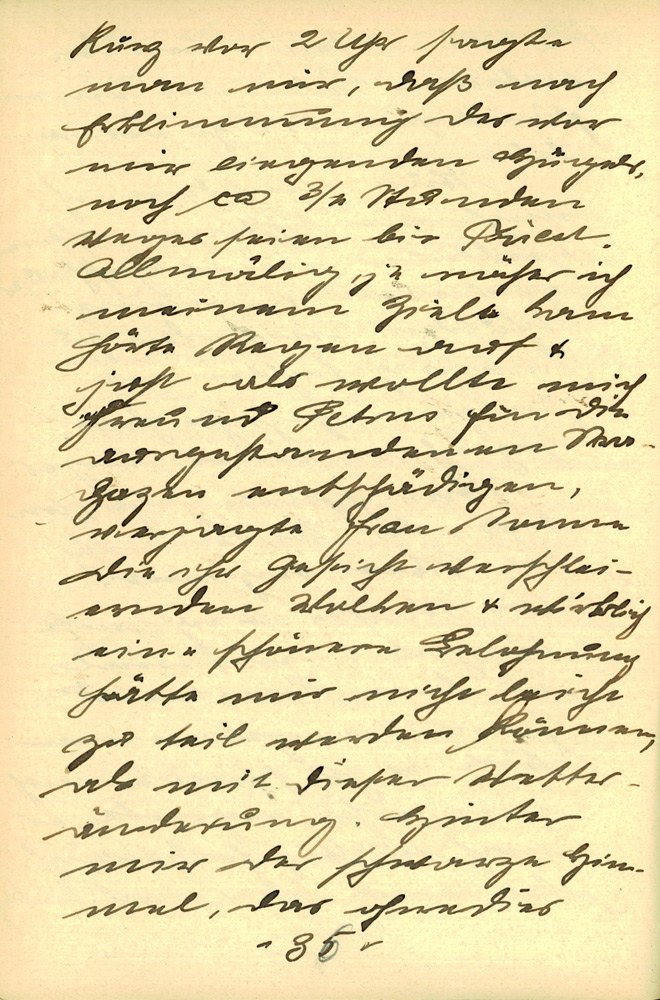 Kurz vor 2 Uhr sagte
man mir, daß nach
Erklimmung des vor
mir liegenden Hügels,
noch ca 3/4 Stunden
Weges seien bis
Allmälig, je näher ich
meinem Ziele kam
hörte Regen auf &
jetzt als wollte mich
Freund Petrus für die
ausgestandenen Stra-
pazen entschädigen,
verjagte Frau Sonne
die ihr Gesicht verschlei-
ernden Wolken & wirklich
eine schönere Belohnung
hätte mir nicht leicht
zu teil werden können,
als mit dieser Wetter-
änderung. Hinter
mir der schwarze Him-
mel, das ohnedies
- 35 -